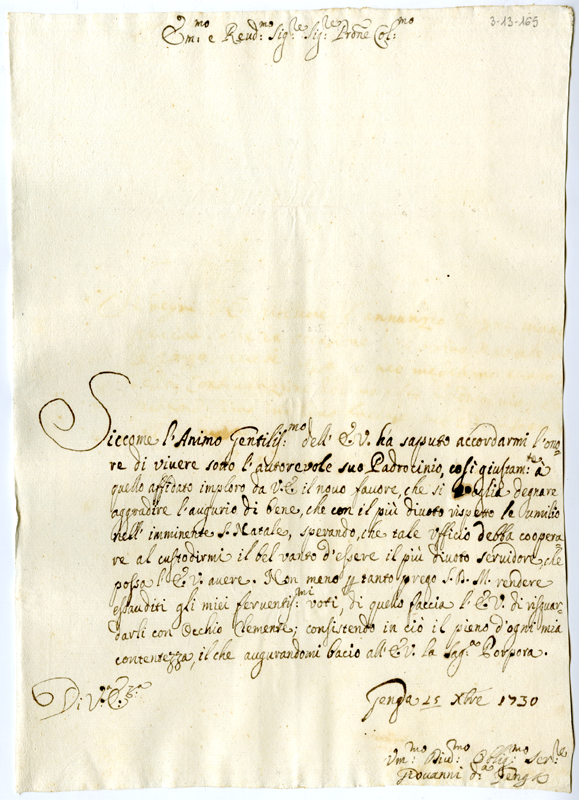 3-13-165
Em:mo e Reud:mo Sig:re Sig:re Prone Col:mo
Siccome l'Animo Gentilis:mo dell' E.V. ha saputo accordarmi l'ono=
re di vivere sotto l'autorevole suo Padrocinio, così giustam:te a
quello affidato imploro da V.E. il novo favore, che si voglia degnare
aggradire l'augurio di bene, che con il più divoto rispetto le umilio
nell' imminente S. Natale, sperando, che tale ufficio debba coopera
re al custodirmi il bel vanto d'essere il più divoto servidore, che
possa l'E.V. avere. Non meno p tanto prego S.D.M. rendere
essauditi gli miei ferventis:mi voti, di quello faccia l'E.V. di risguar=
darli con Occhio Clemente; consistendo in ciò il pieno d'ogni mia
contentezza, il che augurandomi bacio all'E.V. la Sag:a Porpora.
Di V.E.
Genga 15 Xbre 1730
Um:mo Div:mo Oblig:mo Ser:re
Giovanni d:a Genga